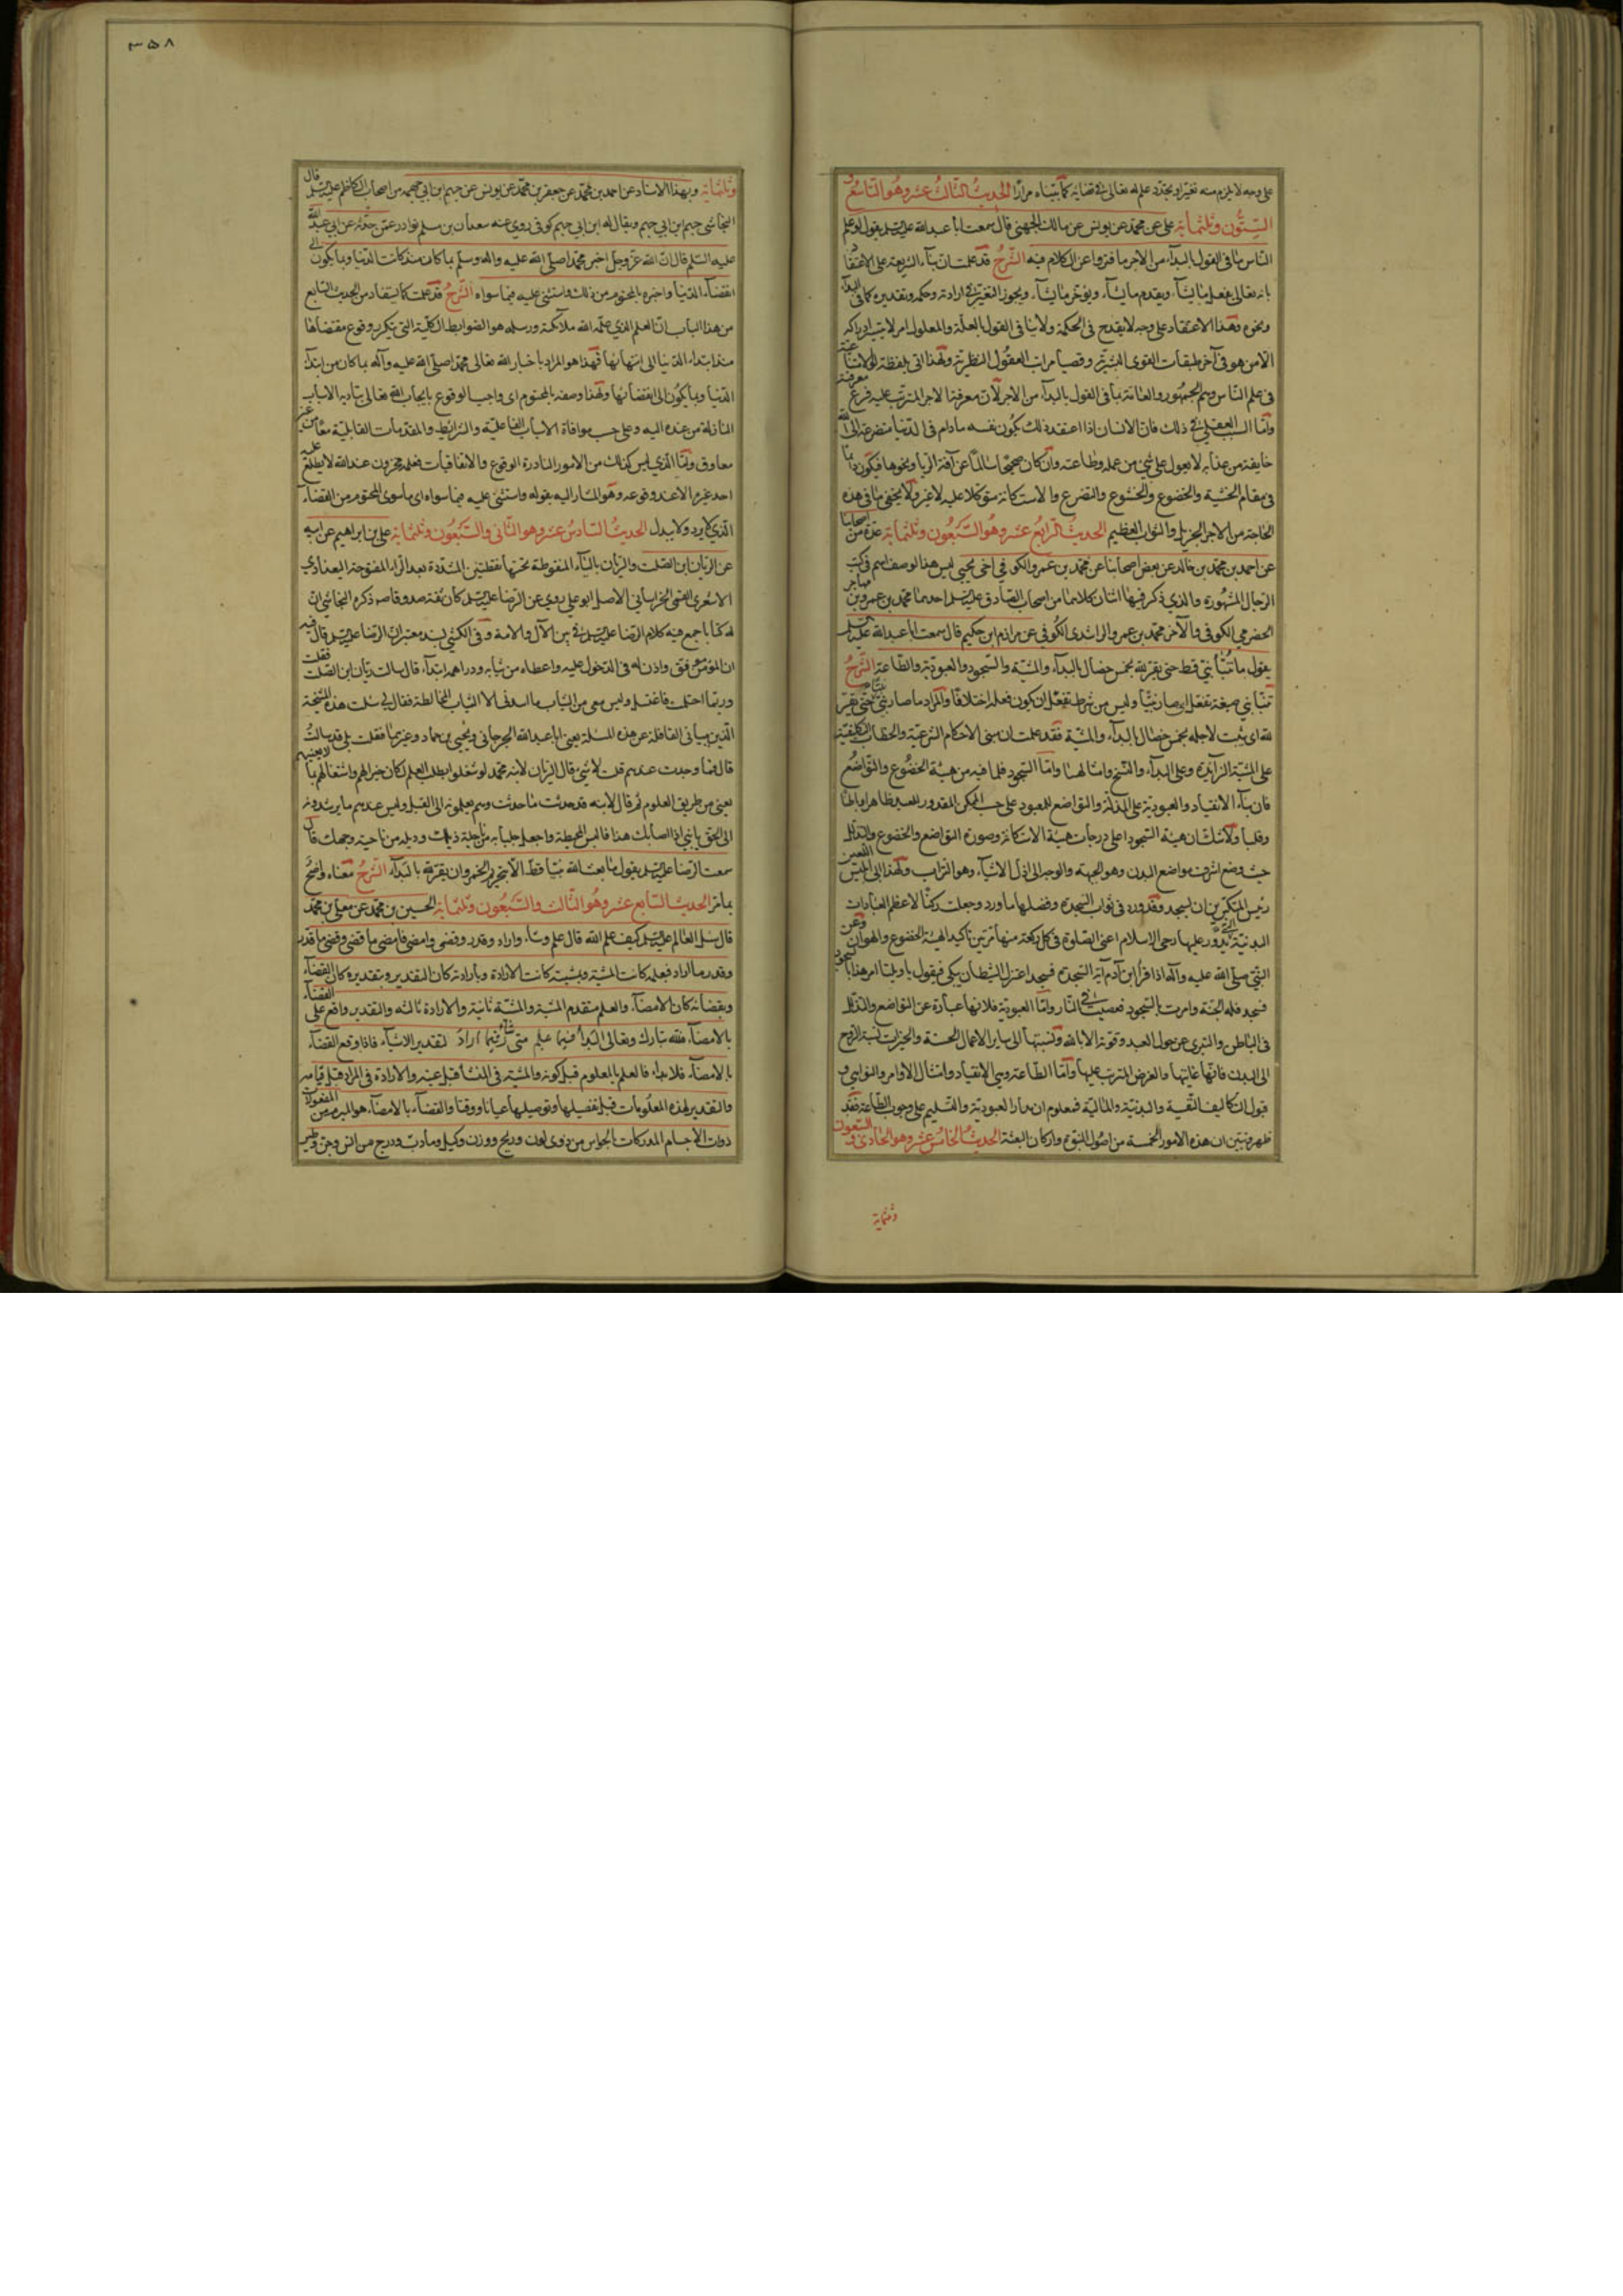 على وجه لا يلزم منه تغير او تجدد علمه تعالى في قضائه كما بيناه مرارا الحديث الثالث عشر وهو التاسع و
الستون وثلثمأية على عن محمد عن يونس عن مالك الجهنى قال سمعت ابا عبد الله عليه السلم يقول لو علم
الناس ما فى القول بالبداء من الاجر ما فتروا عن الكلام فيه الشرح قد علمت ان بناء الشريعة على الاعتقاد
بانه تعالى يفعل ما يشآء ويقدم ما يشآء ويؤخر ما يشآء ويجوز التغير في ارادته وحكمه وتقديره كما فى البدآء
ونحوه وهذا الاعتقاد على وجه لا يقدح فى الحكمة ولا ينافى القول بالعلة والمعلول امر لا يتيسر ادراكه
الا من هو فى آخر طبقات القوى البشرية وقصيا مراتب العقول النظرية ولهذا اتى بلفظة لو لامتناعية
فى علم الناس وهم الجمهور والعامة بما فى القول بالبدآء من الاجر لان معرفة الاجر المترتب عليه فرع معرفته
واما السبب العقلي في ذلك فان الانسان اذا اعتقد ذلك يكون نفسه مادام فى الدنيا متضرعة الى الله
خايفة من عذابه لا يعول على شئ من عمله وطاعته وان كان صحيحا سالما عن آفة الريا ونحوها فيكون دايما
فى مقام الخشية والخضوع والخشوع والتضرع والاستكانة متوكلا عليه لا غير ولا يخفى ما فى هذه
الحالة من الاجر الجزيل والثواب العظيم الحديث الرابع عشر وهو السبعون وثلثمأية عدة من اصحابنا
عن احمد بن محمد بن خالد عن بعض اصحابنا عن محمد بن عمرو الكوفى اخى يحيى ليس هذا الوصف اسم فى كتب
الرجال المشهورة والذي ذكر فيها اثنان كلاهما من اصحاب الصادق عليه السلم احدهما محمد بن عمرو بن مهاجر
الحضرمي الكوفى والآخر محمد بن عمر والراشدى الكوفي عن مرازم ابن حكيم قال سمعت ابا عبد الله عليه السلم
يقول ما تنبأ نبي قط حتى يقر لله بخمس خصال بالبدآء والمشية والسجود والعبودية والطاعة الشرح
تنبأ نبي صيغة تفعل اى صار نبيا وليس من شرط تفعل ان يكون فعله اختلاقا والمراد ما صار نبي نبيا حتى يقر
لله اى يثبت لاجله بخمس خصال بالبدآء والمشية فقد علمت ان مبنى الاحكام الشرعية والخطاب التكليفية
على المشية الزايدة وعلى البدآء والنسخ وامثالهما واما السجود فلما فيه من هيئة الخضوع والتواضع
فان بنآء الانقياد والعبودية على المذلة والتواضع للمعبود على حسب الممكن المقدور للعبد ظاهرا وباطنا
وقلبا ولا شك ان هيئة السجود اعلى درجات هيئة الاستكانة وصورة التواضع والخضوع والتذلل
حيث وضع اشرف مواضع البدن وهو الجبهة والوجه الى ارذل الاشيآء وهو التراب ولهذا ابى ابليس اللعين
رئيس المتكبرين ان يسجد وقد ورد فى ثواب السجدة وفضلها ما ورد وجعلت ركنا لاعظم العبادات
البدنية التى يدور عليها رحى الاسلام اعنى الصلوة فى كل ركعة منها مرتين تاكيدا لهيئة الخضوع والهوان وعن
النبي صلى الله عليه وآله اذا قرأ ابن آدم آية السجدة فسجد اعتزل الشيطان يبكى فيقول يا ويلتا امر هذا بالسجود
فسجد فله الجنة وامرت بالسجود فعصيت فلي النار واما العبودية فلانها عبارة عن التواضع والتذلل
فى الباطن والتبرى عن حول العبد وقوته الا بالله ونسبتها الى ساير الاعمال الحسنة والخيرات نسبة الروح
الى البدن فانها غايتها والغرض المترتب عليها واما الطاعة وهى الانقياد وامتثال الاوامر والنواهى و
قبول التكاليف النفسية والبدنية والمالية فمعلوم ان مدار العبودية والتسليم على وجوب الطاعة فقد
ظهر وتبين ان هذه الامور الخمسة من اصول النبوة واركان البعثة الحديث الخامس عشر وهو الحادى والسبعون
وثلثمأية
٣٥٨
وثلثمأية وبهذا الاسناد عن احمد بن محمد عن جعفر بن محمد عن يونس عن جهم ابن ابي جهمة من اصحاب الكاظم عليه السلم قال
النجاشى جهم ابن ابي جهم ويقال له ابن ابي جهم كوفى روى عنه سعدان بن مسلم نوادر عمن حدثه عن ابي عبد الله
عليه السلم قال ان الله عز وجل اخبر محمدا صلى الله عليه واله وسلم بما كان منذ كانت الدنيا وبما يكون الى
انقضآء الدنيا واخبره بالمحتوم من ذلك واستثنى عليه فيما سواه الشرح قد علمت كما يستفاد من الحديث السابع
من هذا الباب ان العلم الذي علمه الله ملآئكته ورسله هو الضوابط الكلية التى يتكرر وقوع مقتضاها
منذ ابتداء الدنيا الى انتهائها فهذا هو المراد باخبار الله تعالى محمد اصلى الله عليه وآله بما كان من ابتداء
الدنيا وبما يكون الى انقضائها ولهذا وصفه بالمحتوم اى واجب الوقوع بايجاب الله تعالى بتأديه الاسباب
النازلة من عنده اليه وعلى حسب موافاة الاسباب الفاعلية والشرايط والمقدمات القابلية معا من غير
معاوق واما الذي ليس كذلك من الامور النادرة الوقوع والاتفاقيات فعلمه مخزون عند الله لا يطلع عليه
احد غيره الا عند وقوعه وهو المشار اليه بقوله واستثنى عليه فيما سواه اى ما سوى المحتوم من القضآء
الذي لا يرد ولا يبدل الحديث السادس عشر وهو الثانى والسبعون وثلثمأية على بن ابراهيم عن ابيه
عن الريان ابن الصلت والريان باليآء المنقوطة تحتها نقطتين المشددة بعد الرآء المفتوحة البغدادي
الاشعرى القمى الخراسانى الاصل ابو على روى عن الرضا عليه السلم كان ثقة صدوقا صه ذكره النجاشى ان
له كتابا جمع فيه كلام الرضا عليه السلم في بين الآل والامة وفى الكشى بسند معتبر ان الرضا عليه السلم قال فيه
ان المؤمن موفق واذن له فى الدخول عليه واعطاه من ثيابه ودراهمه ابتدآء قال سالت ريان ابن الصلت فقلت
وربما احتلمت فاغتسل وليس معى من الثياب ما البس الا الثياب المخالطة فقال لى سئلت هذه المشيخة
الذين معنا فى القافلة عن هذه المسئلة يعنى ابا عبد الله الجرجانى ويحيى بن حماد وغيرهما فقلت بلى قد سالت
قال فما وجدت عندهم قلت لا شئ قال الريان لابنه محمد لو شغلوا بطلب العلم لكان خيرا لهم واشتغالهم بما لا يعنيهم
يعنى من طريق العلوم ثم قال لابنه قد حدثت ما حدثت وهم يعلمونه الى القبلة وليس عندهم ما يرشدونه
الى الحق يا بني اذا اصابك هذا فالبس
سمعت الرضا عليه السلم يقول ما بعث الله نبيا قط الا بتحريم الخمر وان يقر لله بالبدآء الشرح معناه واضح
بما مر الحديث السابع عشر وهو الثالث والسبعون وثلثمأية الحسين بن محمد عن معلى بن محمد
قال سئل العالم عليه السلم كيف علم الله قال علم وشاء واراد وقدر وقضى وامضى فامضى ما قضى وقضى ما قدر
وقدر ما اراد فبعلمه كانت المشية وبمشيته كانت الارادة وبارادته كان التقدير وبتقديره كان القضآء
وبقضائه كان الامضآء والعلم متقدم المشية والمشية ثانية والارادة ثالثة والتقدير واقع على القضآء
بالامضآء فلله تبارك وتعالى البدآ فيما علم متى شآء وفيما اراد لتقدير الاشيآء فاذا وقع القضآء
بالامضآء فلا بداء فالعلم بالمعلوم قبل كونه والمشية فى المنشأ قبل عينه والارادة فى المراد قبل قيامه
والتقدير لهذه المعلومات قبل تفصيلها وتوصيلها عيانا ووقتا والقضآء بالامضآء هو المبرم من المفعولات
ذوات الاجسام المدركات بالحواس من ذوى لون وريح ووزن وكيل وما دب ودرج من انس وجن وطير